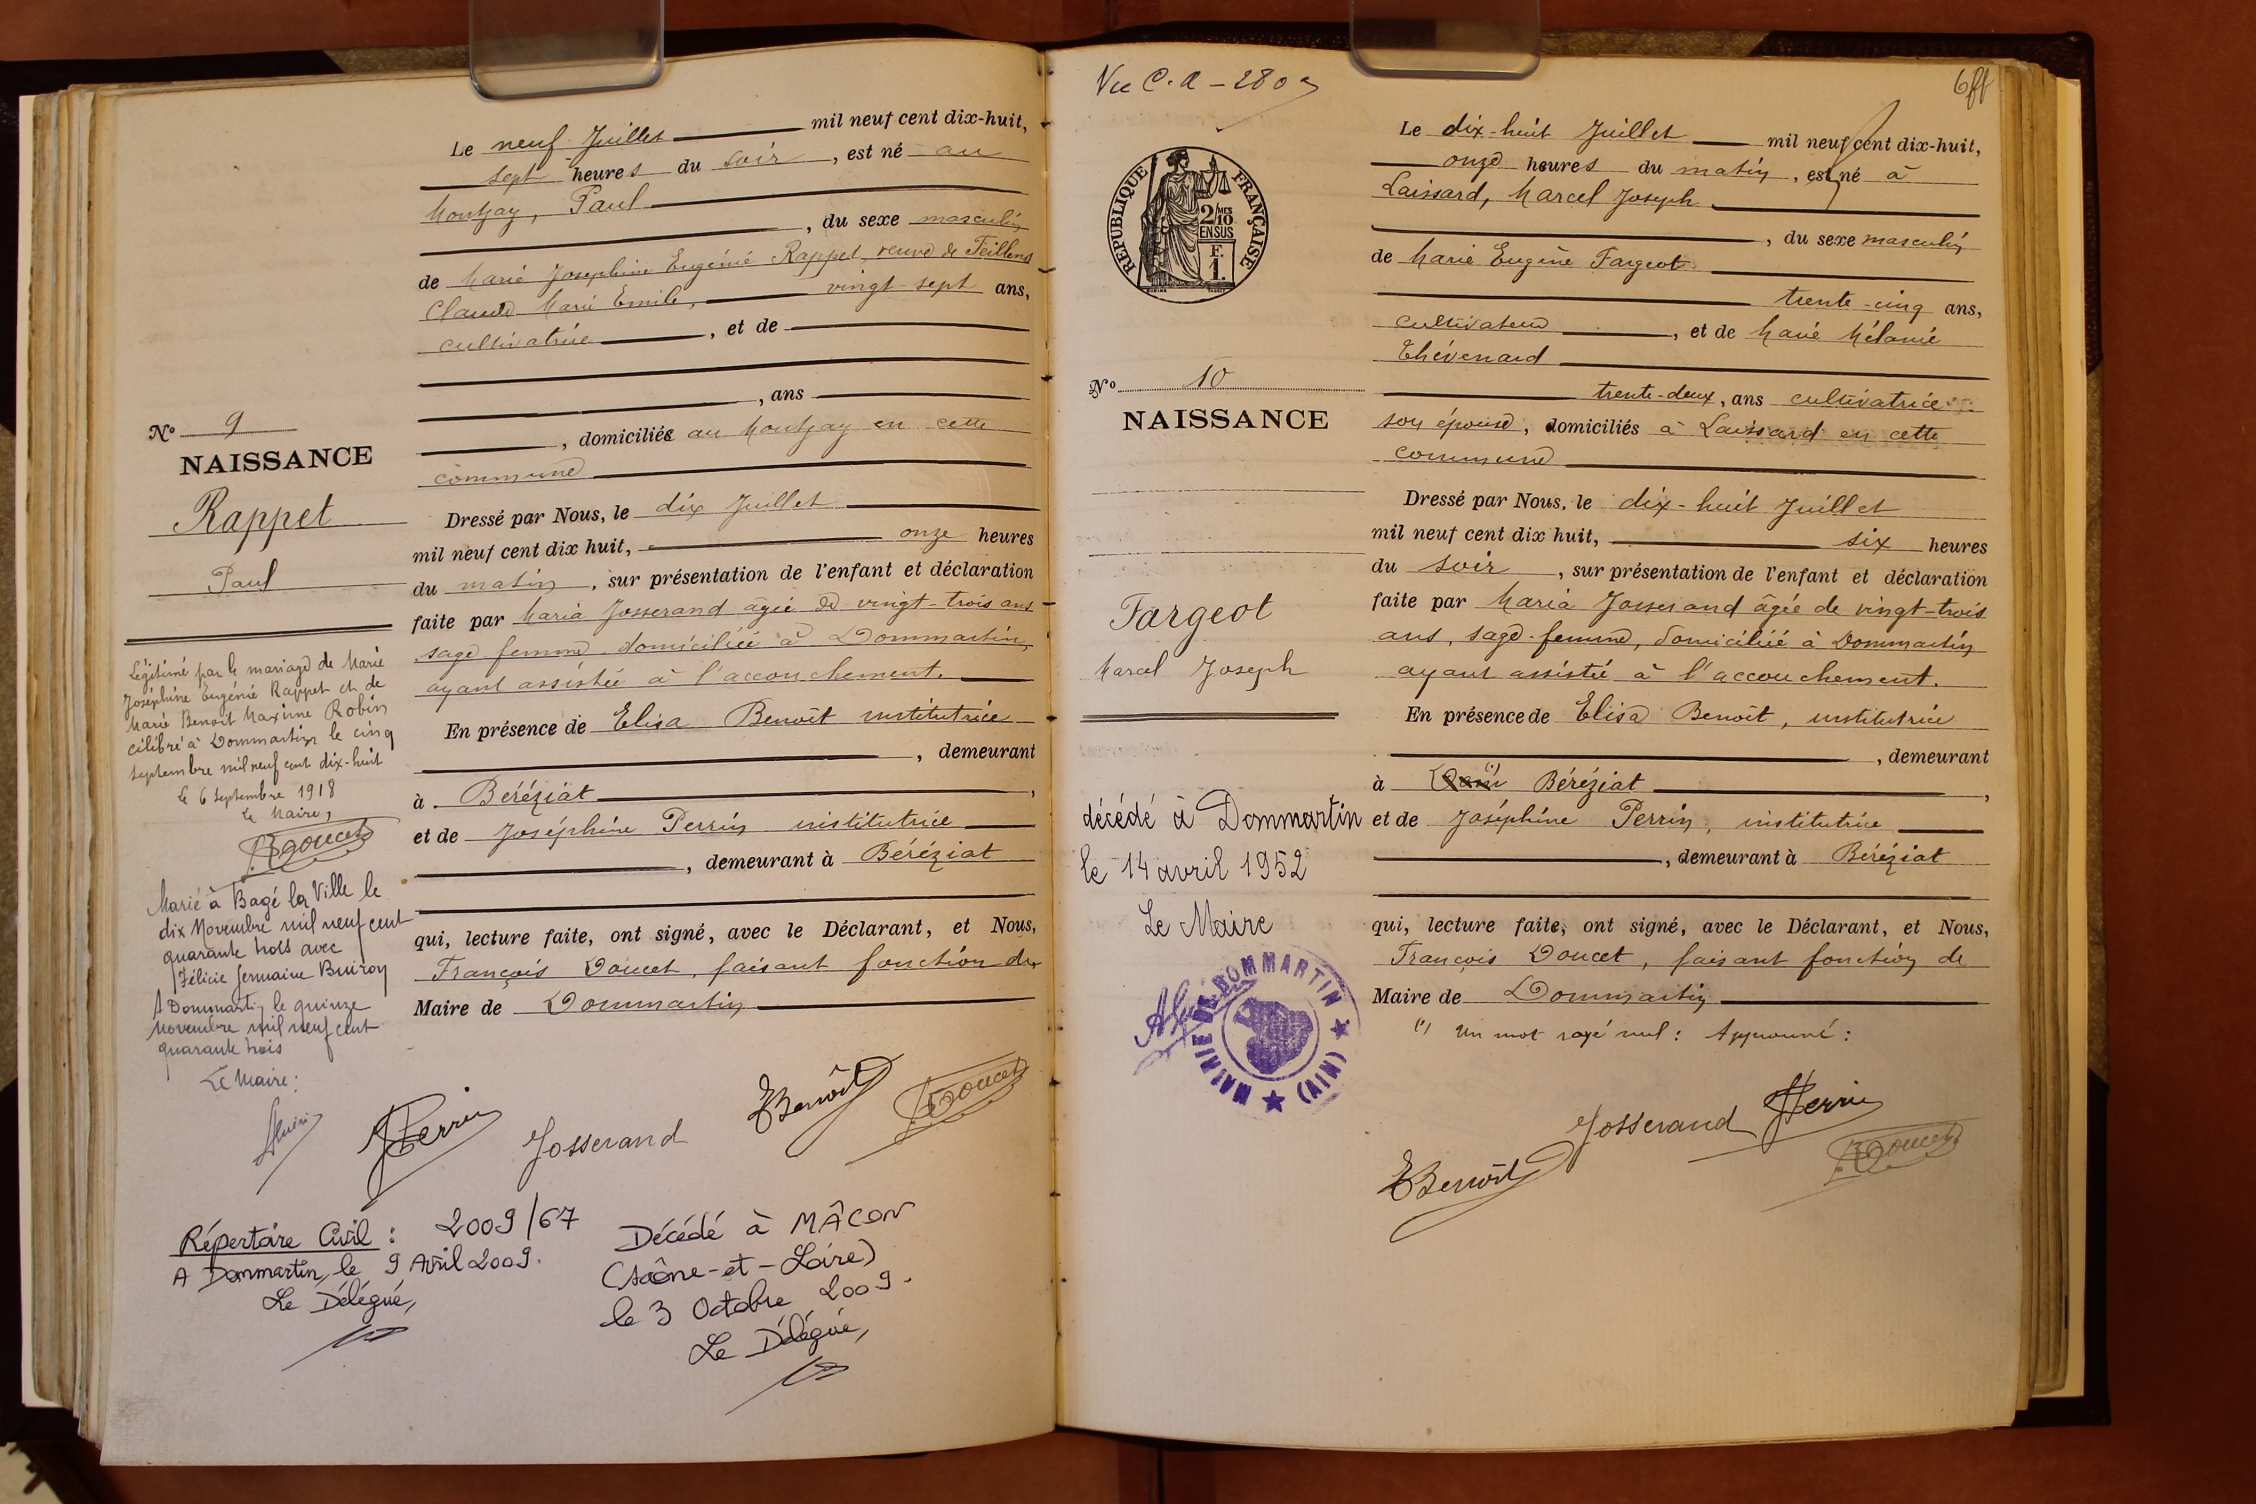 Le neuf Juillet mil neuf cent dix-huit,
sept heures du soir, est né au
Montjay, Paul
, du sexe masculin
de Marie Joséphine Eugénie Rappet veuve de Feillens
Claude Marie Emile, vingt-sept ans,
cultivatrice, et de
, ans
, domiciliée au Montjay en cette
commune
No 9
NAISSANCE
Rappet
Paul
Dressé par Nous, le dix Juillet
mil neuf cent dix huit, onze heures
du matin, sur présentation de l'enfant et déclaration
faite par Maria Josserand âgée de vingt-trois ans
sage femme domiciliée à Dommartin
ayant assistée à l'accouchement.
En présence de Elisa Benoît institutrice
, demeurant
à Béréziat,
et de Joséphine Perrin institutrice
, demeurant à Béréziat
qui, lecture faite, ont signé, avec le Déclarant, et Nous,
François Doucet, faisant fonction de
Maire de Dommartin
Légitimé par le mariage de Marie
Joséphine Eugénie Rappet et de
Marie Benoit Maxime Robin
célébré à Dommartin le cinq
septembre mil neuf cent dix-huit
le 6 Septembre 1918
Le Maire,
Doucet
Marié à Bagé la Ville le
dix Novembre mil neuf cent
quarante trois avec
Félicie Germaine Buiron
A Dommartin le quinze
novembre mil neuf cent
quarante trois
Le Maire:
JPerrin Josserand EBenoît Doucet
Répertoire Civil : 2009/67
A Dommartin, le 9 Avril 2009.
Le Délégué,
Décédé à MÂCON
(Saône-et-Loire)
le 3 Octobre 2009.
Le Délégué,
Vu C.A - 280
RÉPUBLIQUE FRANÇAISE
2/10 MES
EN SUS
F.
1.
Le dix-huit Juillet mil neuf cent dix-huit,
onze heures du matin, est né à
Laissard, Marcel Joseph
, du sexe masculin
de Marie Eugène Fargeot
trente-cinq ans,
cultivateur, et de Marie Mélanie
Thévenard
trente-deux, ans cultivatrice
son épouse, domiciliés à Laissard en cette
commune
No 10
NAISSANCE
Fargeot
Marcel Joseph
Dressé par Nous, le dix-huit Juillet
mil neuf cent dix huit, six heures
du soir, sur présentation de l'enfant et déclaration
faite par Maria Josserand âgée de vingt-trois
ans, sage-femme, domiciliée à Dommartin
ayant assisté à l'accouchement.
En présence de Elisa Benoît, institutrice
, demeurant
à (1) Béréziat,
et de Joséphine Perrin, institutrice
, demeurant à Béréziat
qui, lecture faite, ont signé, avec le Déclarant, et Nous,
François Doucet, faisant fonction de
Maire de Dommartin
(1) Un mot rayé nul : Approuvé :
décédé à Dommartin
le 14 avril 1952
Le Maire
MAIRIE DE DOMMARTIN (AIN)
Josserand JPerrin
EBenoît Doucet